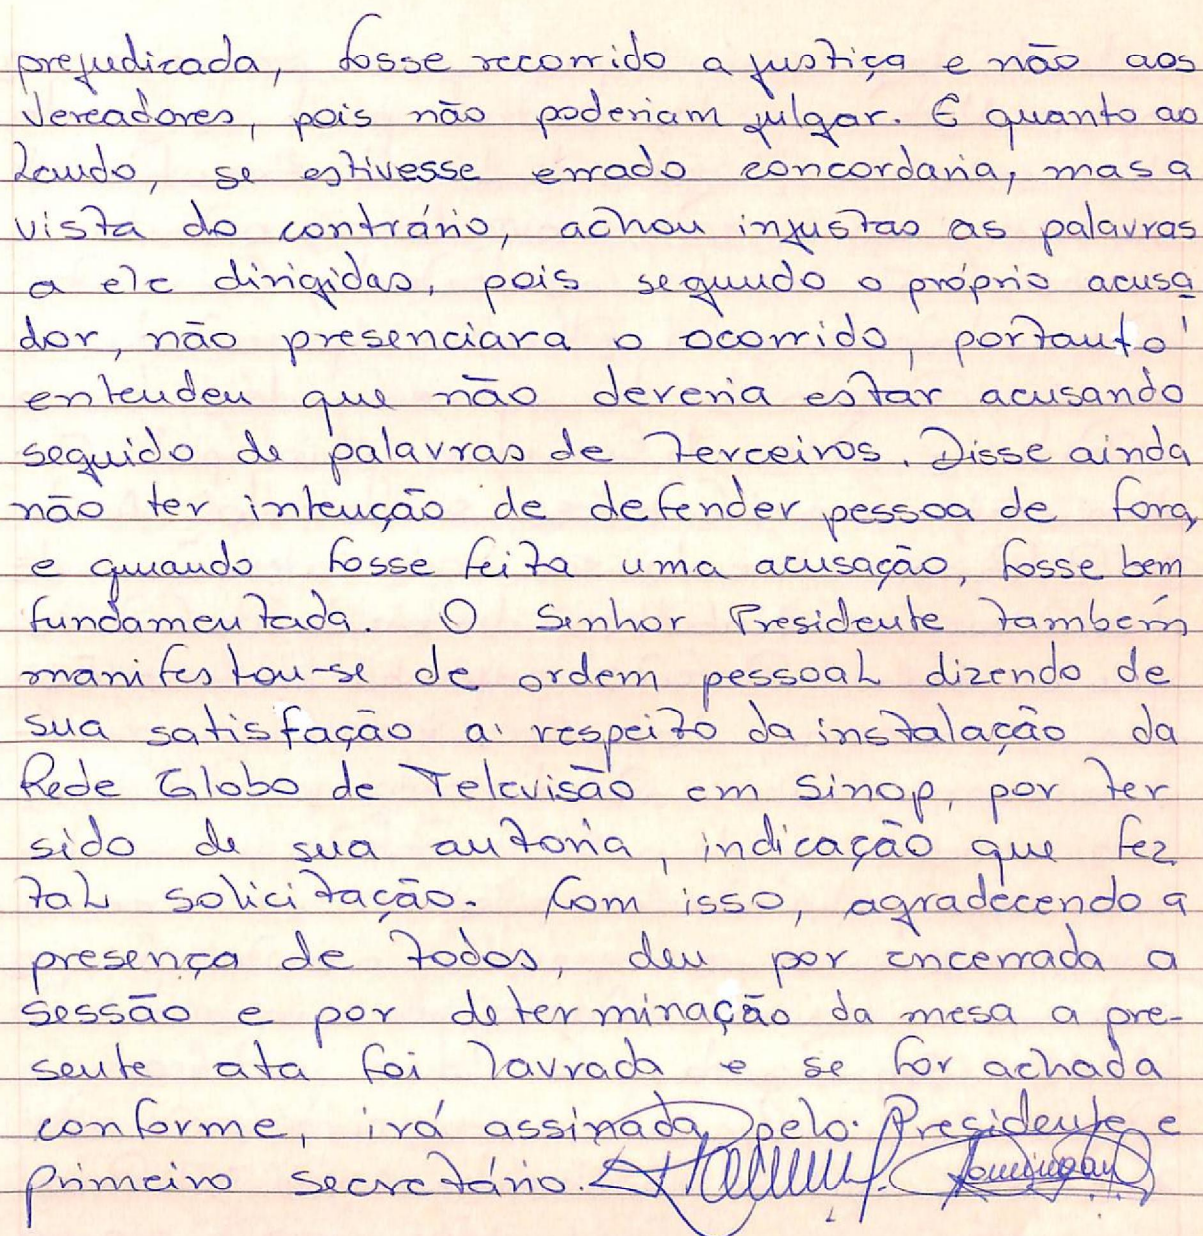 prejudicada, fosse recorrido a justiça e não aos
Vereadores, pois não poderiam julgar. E quanto ao
Laudo, se estivesse errado concordaria, mas a
vista do contrário, achou injustas as palavras
a ele dirigidas, pois segundo o próprio acusa
dor, não presenciara o ocorrido, portanto
entendeu que não deveria estar acusando
seguido de palavras de terceiros. Disse ainda
não ter intenção de defender pessoa de fora,
e quando fosse feita uma acusação, fosse bem
fundamentada. O Senhor Presidente também
manifestou-se de ordem pessoal dizendo de
sua satisfação a respeito da instalação da
Rede Globo de Televisão em Sinop, por ter
sido de sua autoria, indicação que fez
tal solicitação. Com isso, agradecendo a
presença de todos, deu por encerrada a
sessão e por determinação da mesa a pre-
sente ata foi lavrada e se for achada
conforme, irá assinada pelo Presidente e
primeiro secretário.